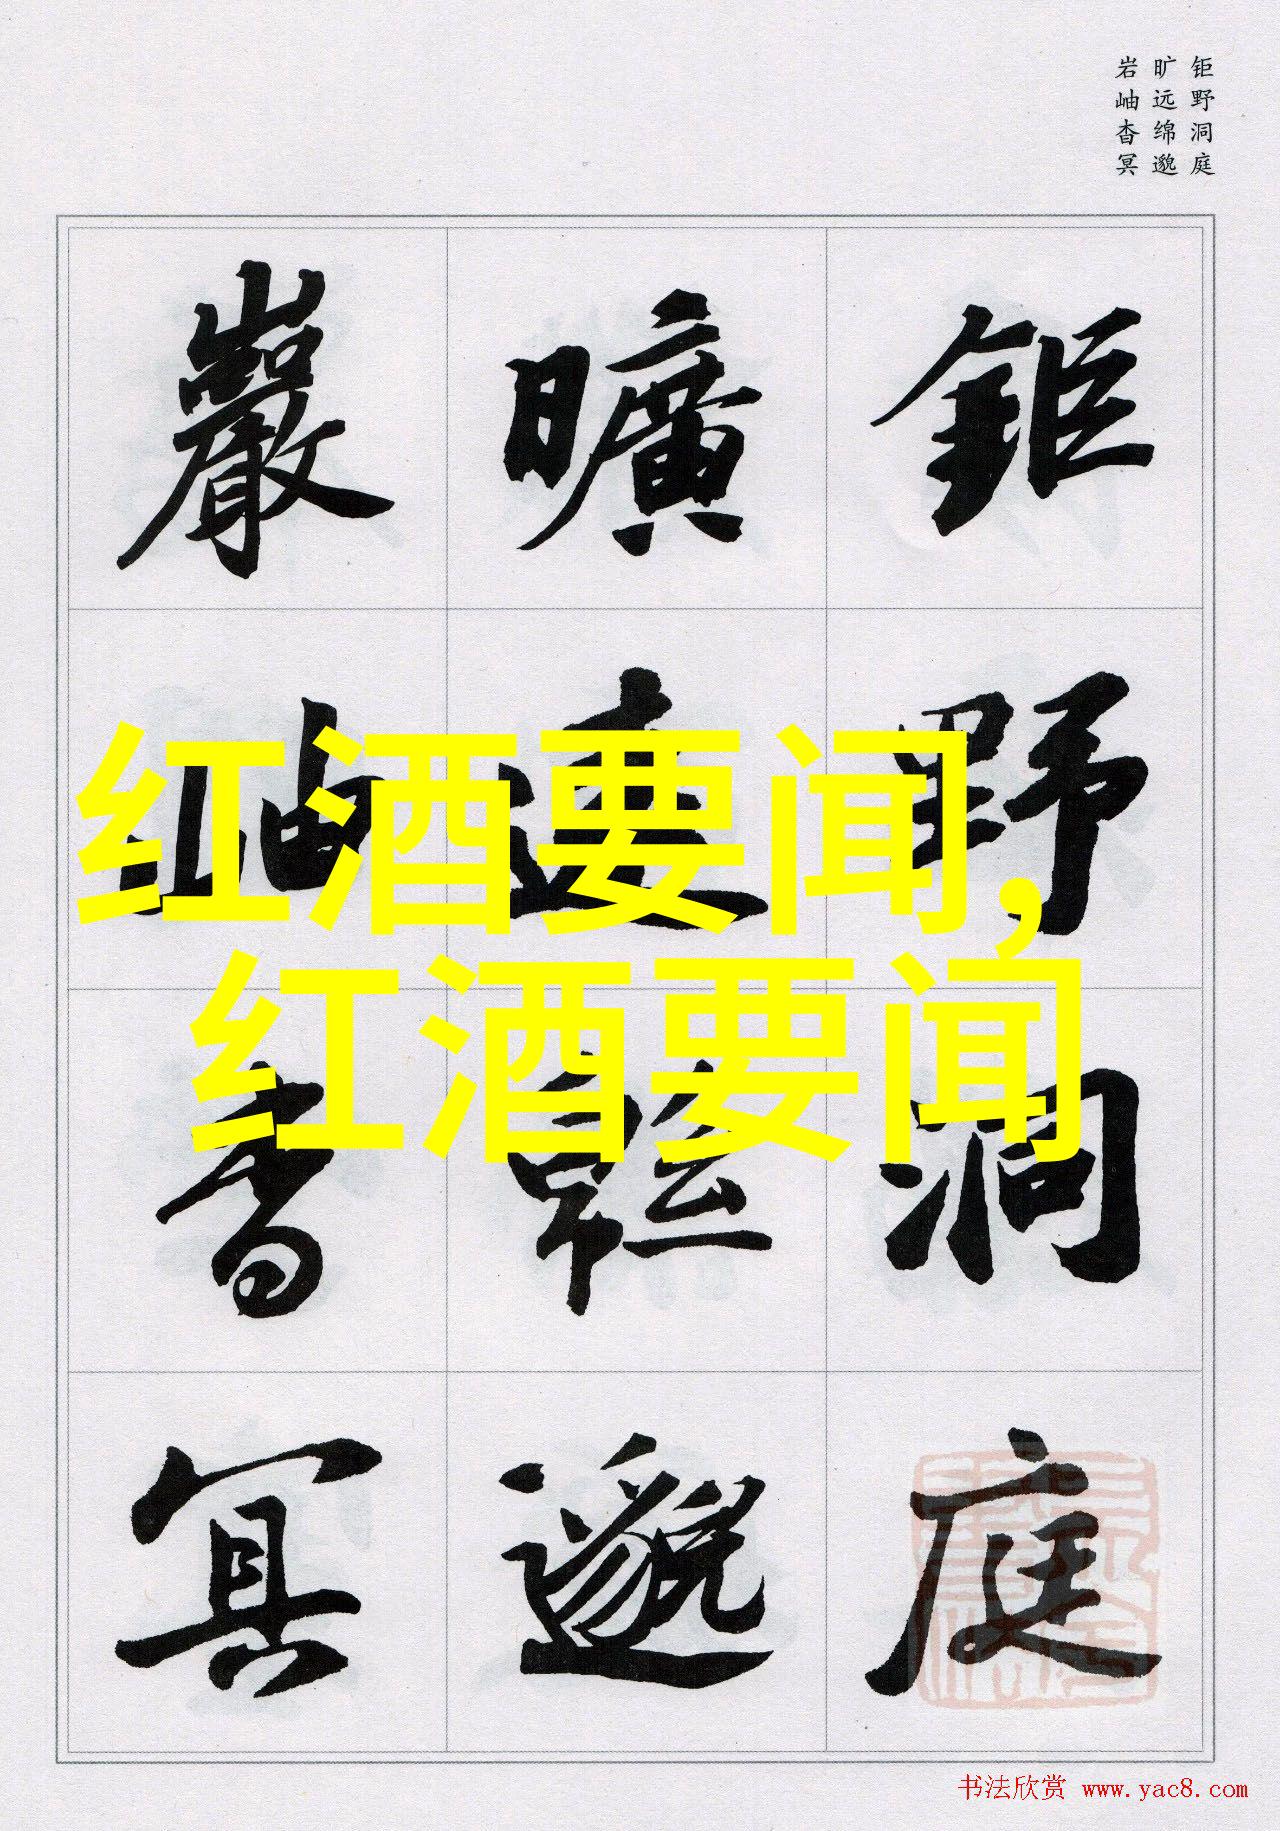 钜野洞庭
旷远绵邈
岩岫杳冥
鉅野洞庭
曠遠緜邈
巖岫杳冥
红酒要闻,
红酒要闻
书法欣赏 www.yac8.com